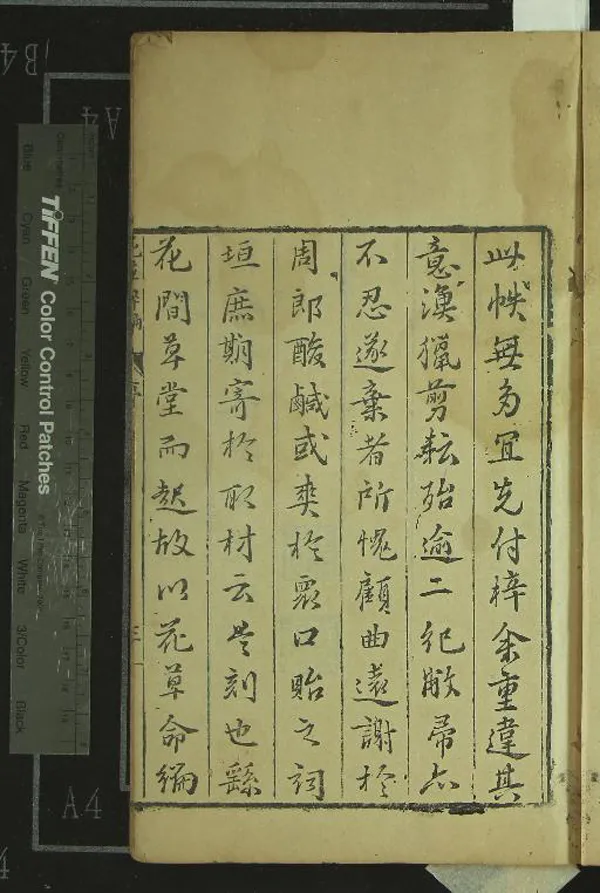 此帙無多宜先付梓余重違其
意漁獵剪耘殆逾二紀敝帚亦
不忍遂棄者所愧顧曲遠謝於
周郎酸鹹或爽於眾口貽之詞
垣庶期寄於取材云是刻也繇
花間草堂而起故以花草命編
三
TIFFEN Color Control Patches
Blue Cyan Green Yellow Red Magenta White 3/Color Black
B4
A4
A4